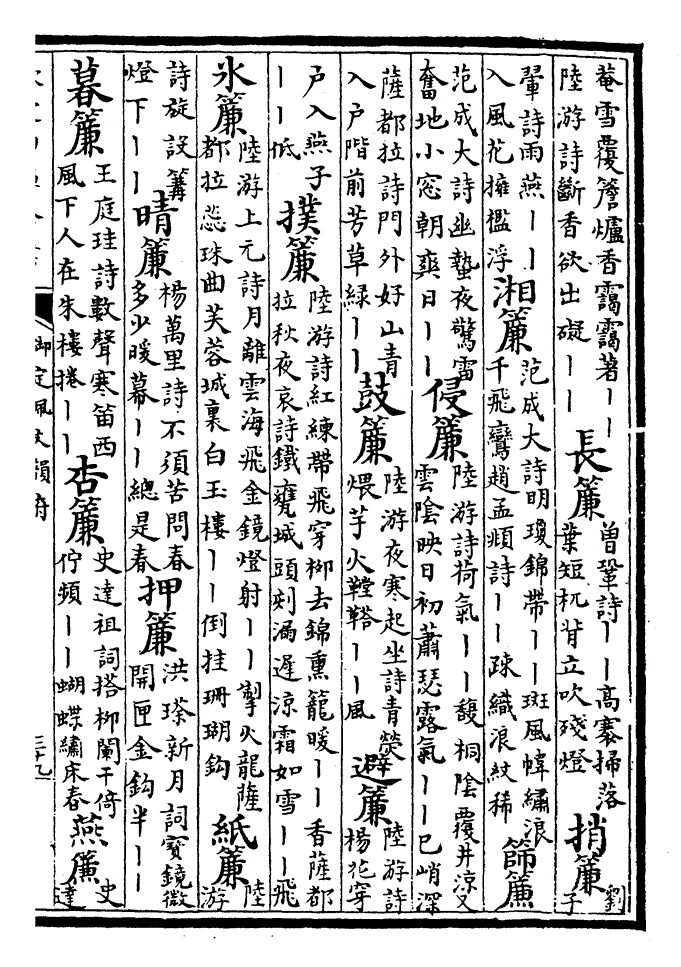 菴雪覆簷爐香靄靄著丨丨
陸游詩斷香欲出礙丨丨
長簾
曾鞏詩丨丨高褰掃落
葉短杌背立吹殘燈
捎簾
劉
子
翬詩雨燕丨丨
入風花擁檻浮
湘簾
范成大詩明瓊錦帶丨丨斑風幃繡浪
千飛鸞趙孟頫詩丨丨疎織浪紋稀
篩簾
范成大詩幽蟄夜驚雷
奮地小窓朝爽日丨丨
侵簾
陸游詩荷氣丨丨馥桐陰覆井涼又
雲陰映日初蕭瑟露氣丨丨已峭深
薩都拉詩門外好山青
入戶階前芳草綠丨丨
鼓簾
陸游夜寒起坐詩青熒
煨芋火鞺鞳丨丨風
避簾
陸游詩
楊花穿
戶入燕子
丨丨低
撲簾
陸游詩紅練帶飛穿柳去錦熏籠暖丨丨香薩都
拉秋夜哀詩鐵甕城頭刻漏遲涼霜如雪丨丨飛
氷簾
陸游上元詩月離雲海飛金鏡燈射丨丨掣火龍薩
都拉蕊珠曲芙蓉城裏白玉樓丨丨倒挂珊瑚鈎
紙簾
陸
游
詩旋設篝
燈下丨丨
晴簾
楊萬里詩不須苦問春
多少暖幕丨丨總是春
押簾
洪瑹新月詞寶鏡微
開匣金鈎半丨丨
暮簾
王庭珪詩數聲寒笛西
風下人在朱樓捲丨丨
杏簾
史達祖詞搭柳闌干倚
佇頻丨丨蝴蝶繡床春
燕簾
史
達
御定佩文韻府
三十九